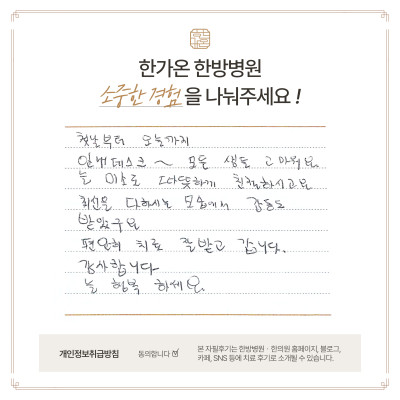 한가온 한방병원
소중한 경험 을 나눠주세요 !
첫날부터 오늘까지
안내데스크 ~ 모든 샘도 고마워요.
늘 미소로 따뜻하게 친절하시고요
최선을 다하시는 모습에서 감동도
받았구요
편안히 치료 잘받고 갑니다.
감사합니다
늘 행복 하세요.
개인정보취급방침 동의합니다
본 자필후기는 한방병원 · 한의원 홈페이지, 블로그,
카페, SNS 등에 치료 후기로 소개될 수 있습니다.